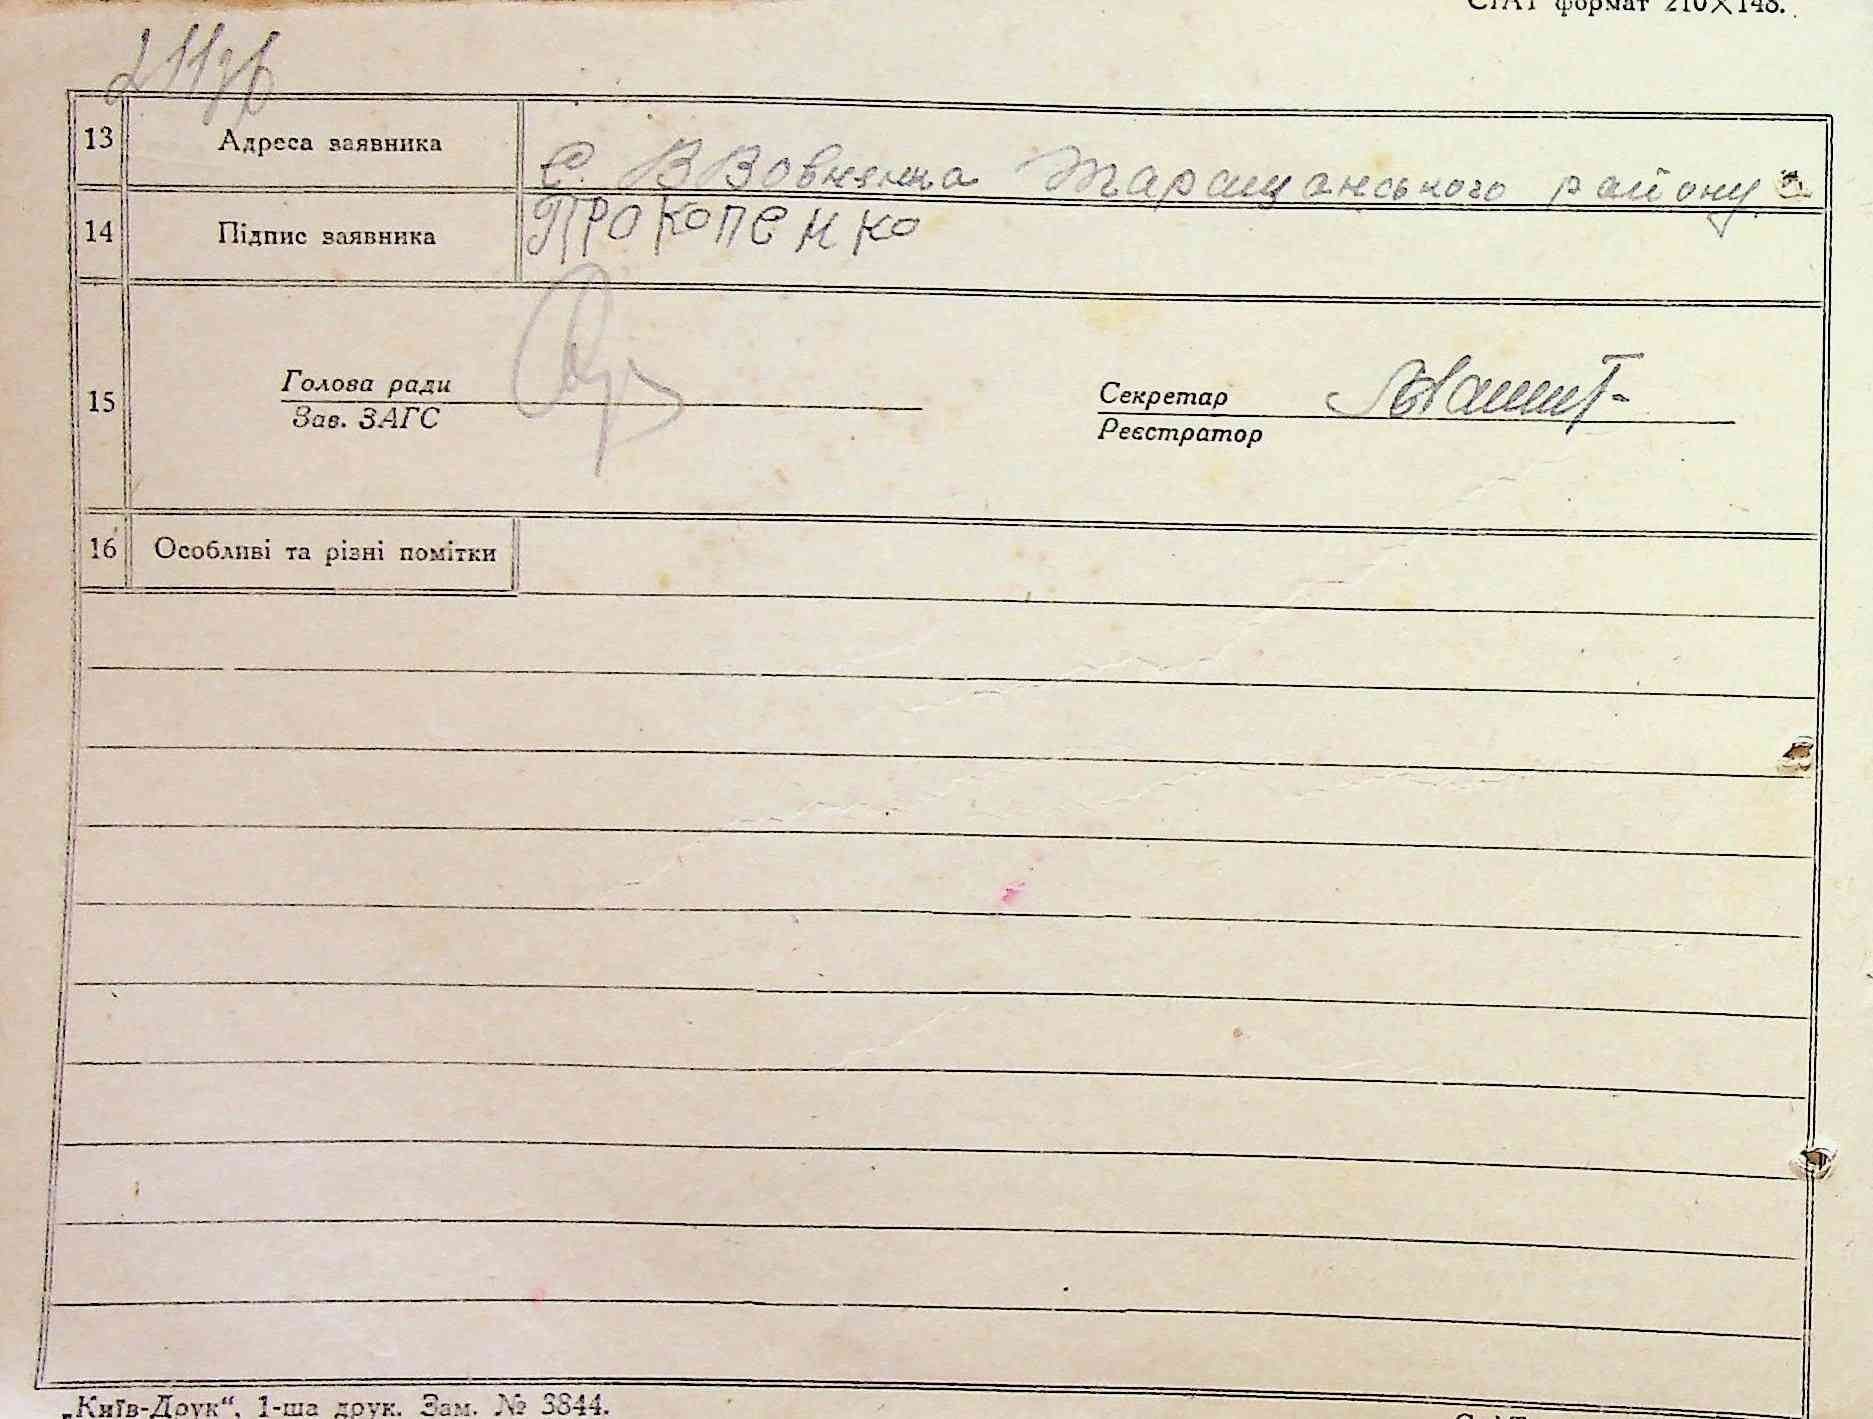 формат 210×148.
13 Адреса заявника С. В Вовнянка Таращанського району
14 Підпис заявника Прокопенко
15 Голова ради
Зав. ЗАГС
Секретар
Реєстратор
16 Особливі та різні помітки
„Київ-Друк“, 1-ша друк. Зам. № 3844.